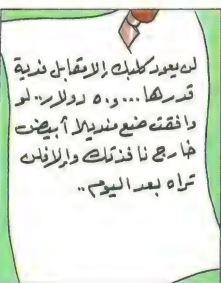 لن يعود كلبك إلا مقابل فدية
قدرها...و٥٠ دولار.. لو
وافقت ضع منديلا أبيض
خارج نافذتك وإلا فلن
تراه بعد اليوم..